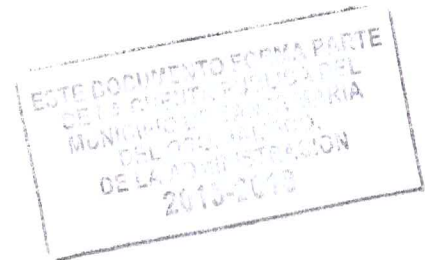 ESTE DOCUMENTO FORMA PARTE
DE LA CUENTA PUBLICA DEL
MUNICIPIO DE SANTA MARIA
DEL
DE LA ADMINISTRACIÓN